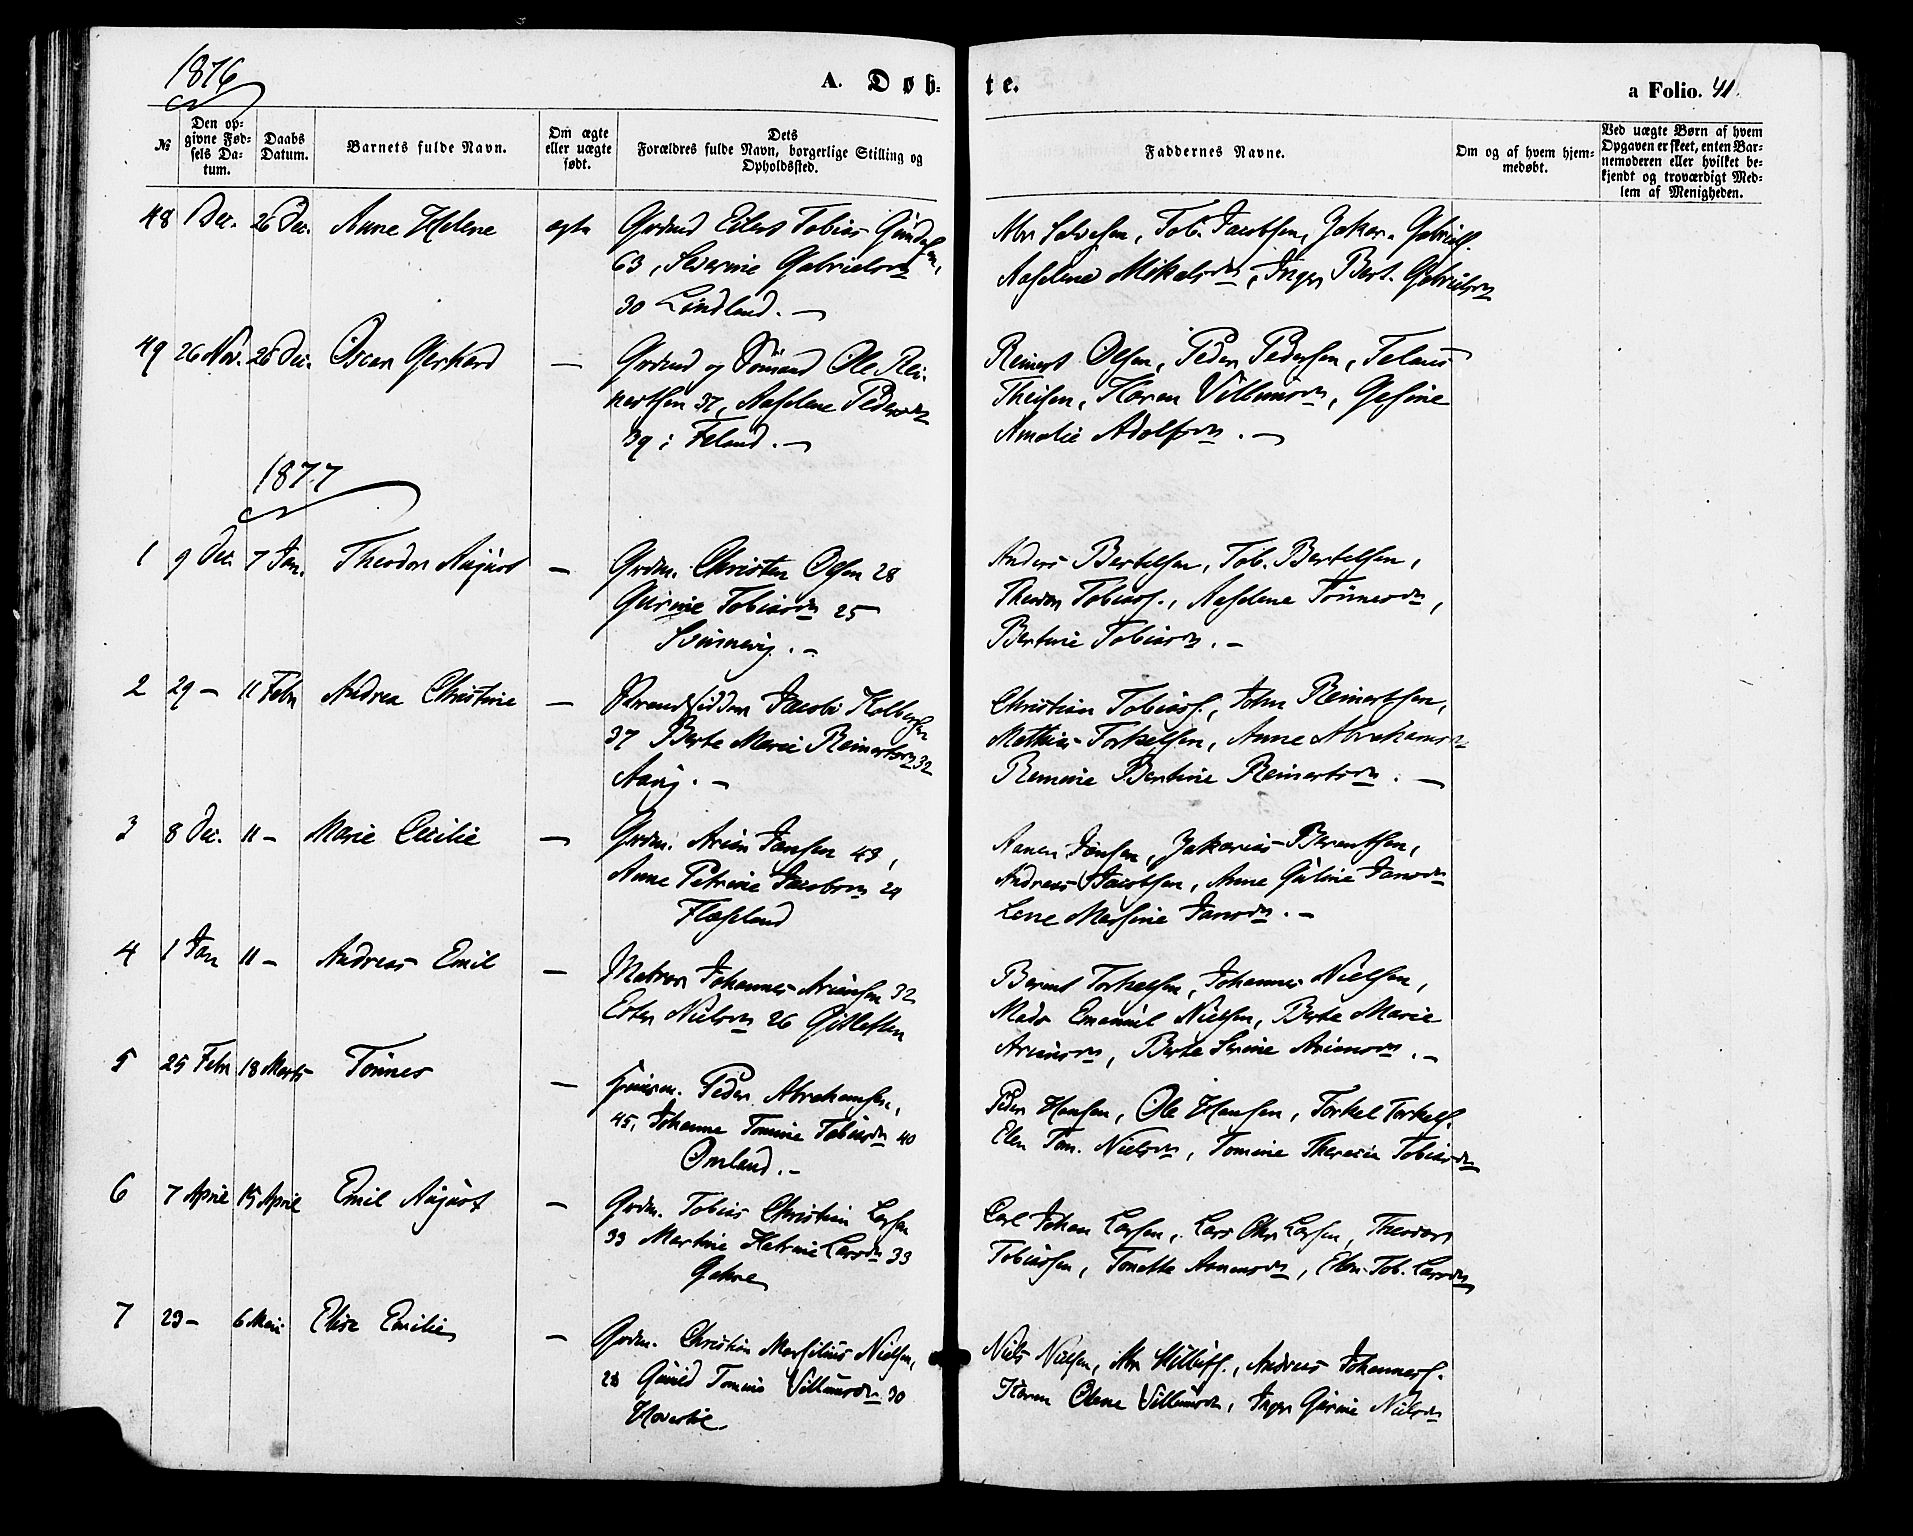 1876
A. Døb-
te.
a Folio. 41.
№
Den op-
givne Fød-
sels Da-
tum.
Daabs
Datum.
Barnets fulde Navn.
Om ægte
eller uægte
født.
Dets
Forældres fulde Navn, borgerlige Stilling og
Opholdssted.
Faddernes Navne.
Om og af hvem hjem-
medøbt.
Ved uægte Børn af hvem
Opgaven er skeet, enten Bar-
nemoderen eller hvilket be-
kjendt og troværdigt Med-
lem af Menigheden.
48 1 Dec. 26 Dec. Anne Helene ægte Grdmd Eilert Tobias
63, Severine Gabrielsdr
30 Lindland. —
Abr Salvesen, Tob. Jacobsen, Zakar. Gabriels.
Aaselene Mikalsdr, Inger Bert. Gabrielsdr
49 26 Nov. 26 Dec. Oscar Gerhard — Grdmd og Sømand Ole Rei-
nertsen 37, Aaselene Pedersdr
39 : Feland. —
Reinert Olsen, Peder Pedersen, Telaus
Theisen, Karen Villumsdr, Gesine
Amalie Adolfsdr. —
1877
1 9 Dec. 7 Jan. Theodor August — Grdm. Christen Olsen 28
Tobiasdr 25
Svinnevig. —
Anders Bertelsen, Tob. Bertelsen,
Theodor Tobias., Aaselene Tønnesdr,
Bertine Tobiasdr. —
2 29 — 11 Febr Andrea Christine — Strandsidder Jacob Kolbersen
37 Berte Marie Reinertsdr 32
Aavig. —
Christian Tobias., John Reinertsen,
Mathias Torkelsen, Anne Abrahamsdr
Bertine Reinertsdr. —
3 8 Dec. 11 — Marie Cecilie — Grdm. Arian Jansen 43,
Anne Petrine Jacobsdr 24
Flaseland
Aanen Jansen, Zakarias Berentsen,
Andreas Jacobsen, Anne Guline Jansdr
Lene Marsine Jansdr. —
4 1 Jan 11 — Andreas Emil — Matros Johannes Ariansen 32
Ester Nielsdr 26 Gitlesten
Berent Torkelsen, Johannes Nielsen,
Mads Emanuel Nielsen, Berte Marie
Ariansdr, Berte Serine Ariansdr. —
5 25 Febr 18 Marts Tønnes — Huusm. Peder Abrahamsen,
45, Johanne Tomine Tobiasdr 40
Omland. —
Peder Hansen, Ole Hansen, Torkel Torkels.
Elen Tom. Nielsdr, Tomine Theresia Tobiasdr
6 7 April 15 April Emil August — Grdm. Tobias Christian Larsen
33 Martine Katrine Larsdr 33
Gahre
Carl Johan Larsen, Lars Chr Larsen, Theodor
Tobiassen, Tonette Aanensdr, Elen Tob. Larsdr
7 23 — 6 Mai Elise Emilie — Grdm. Christian Marselius Nielsen,
28 Gunild Tomine Villumsdr 30
Niels Nielsen, Abr Andreas Johannes.
Karen Olene Villumsdr, Inger Gurine Nielsdr